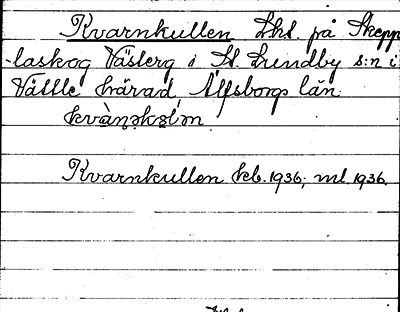 Kvarnkullen Lht. på Skepp
-laskog Västerg i St. Lundby s:n i
Vättle härad Älfsborgs län.
Kvarnkullen kb. 1936; ml 1936.